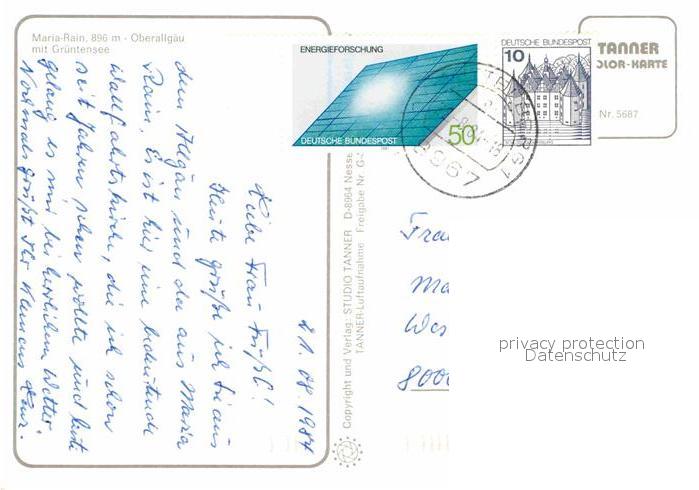 Maria-Rain, 896 m - Oberallgäu
mit Grüntensee
21.08.1984
Liebe Frau
Heute grüße ich Sie aus
dem Allgäu und da aus Maria
Rain. Es ist hier eine bedeutende
Wallfahrtskirche, die ich schon
seit Jahren sehen wollte und heute
gelang es mir bei herrlichem Wetter.
Nochmals grüßt Ihr Klemens
ENERGIEFORSCHUNG
DEUTSCHE BUNDESPOST
50
DEUTSCHE BUNDESPOST
10
8967
TANNER
OLOR-KARTE
Nr. 5687
Copyright und Verlag: STUDIO TANNER D-8964 Nesse
TANNER-Luftaufnahme Freigabe Nr. G
Frau
Ma
Wes
800
privacy protection
Datenschutz